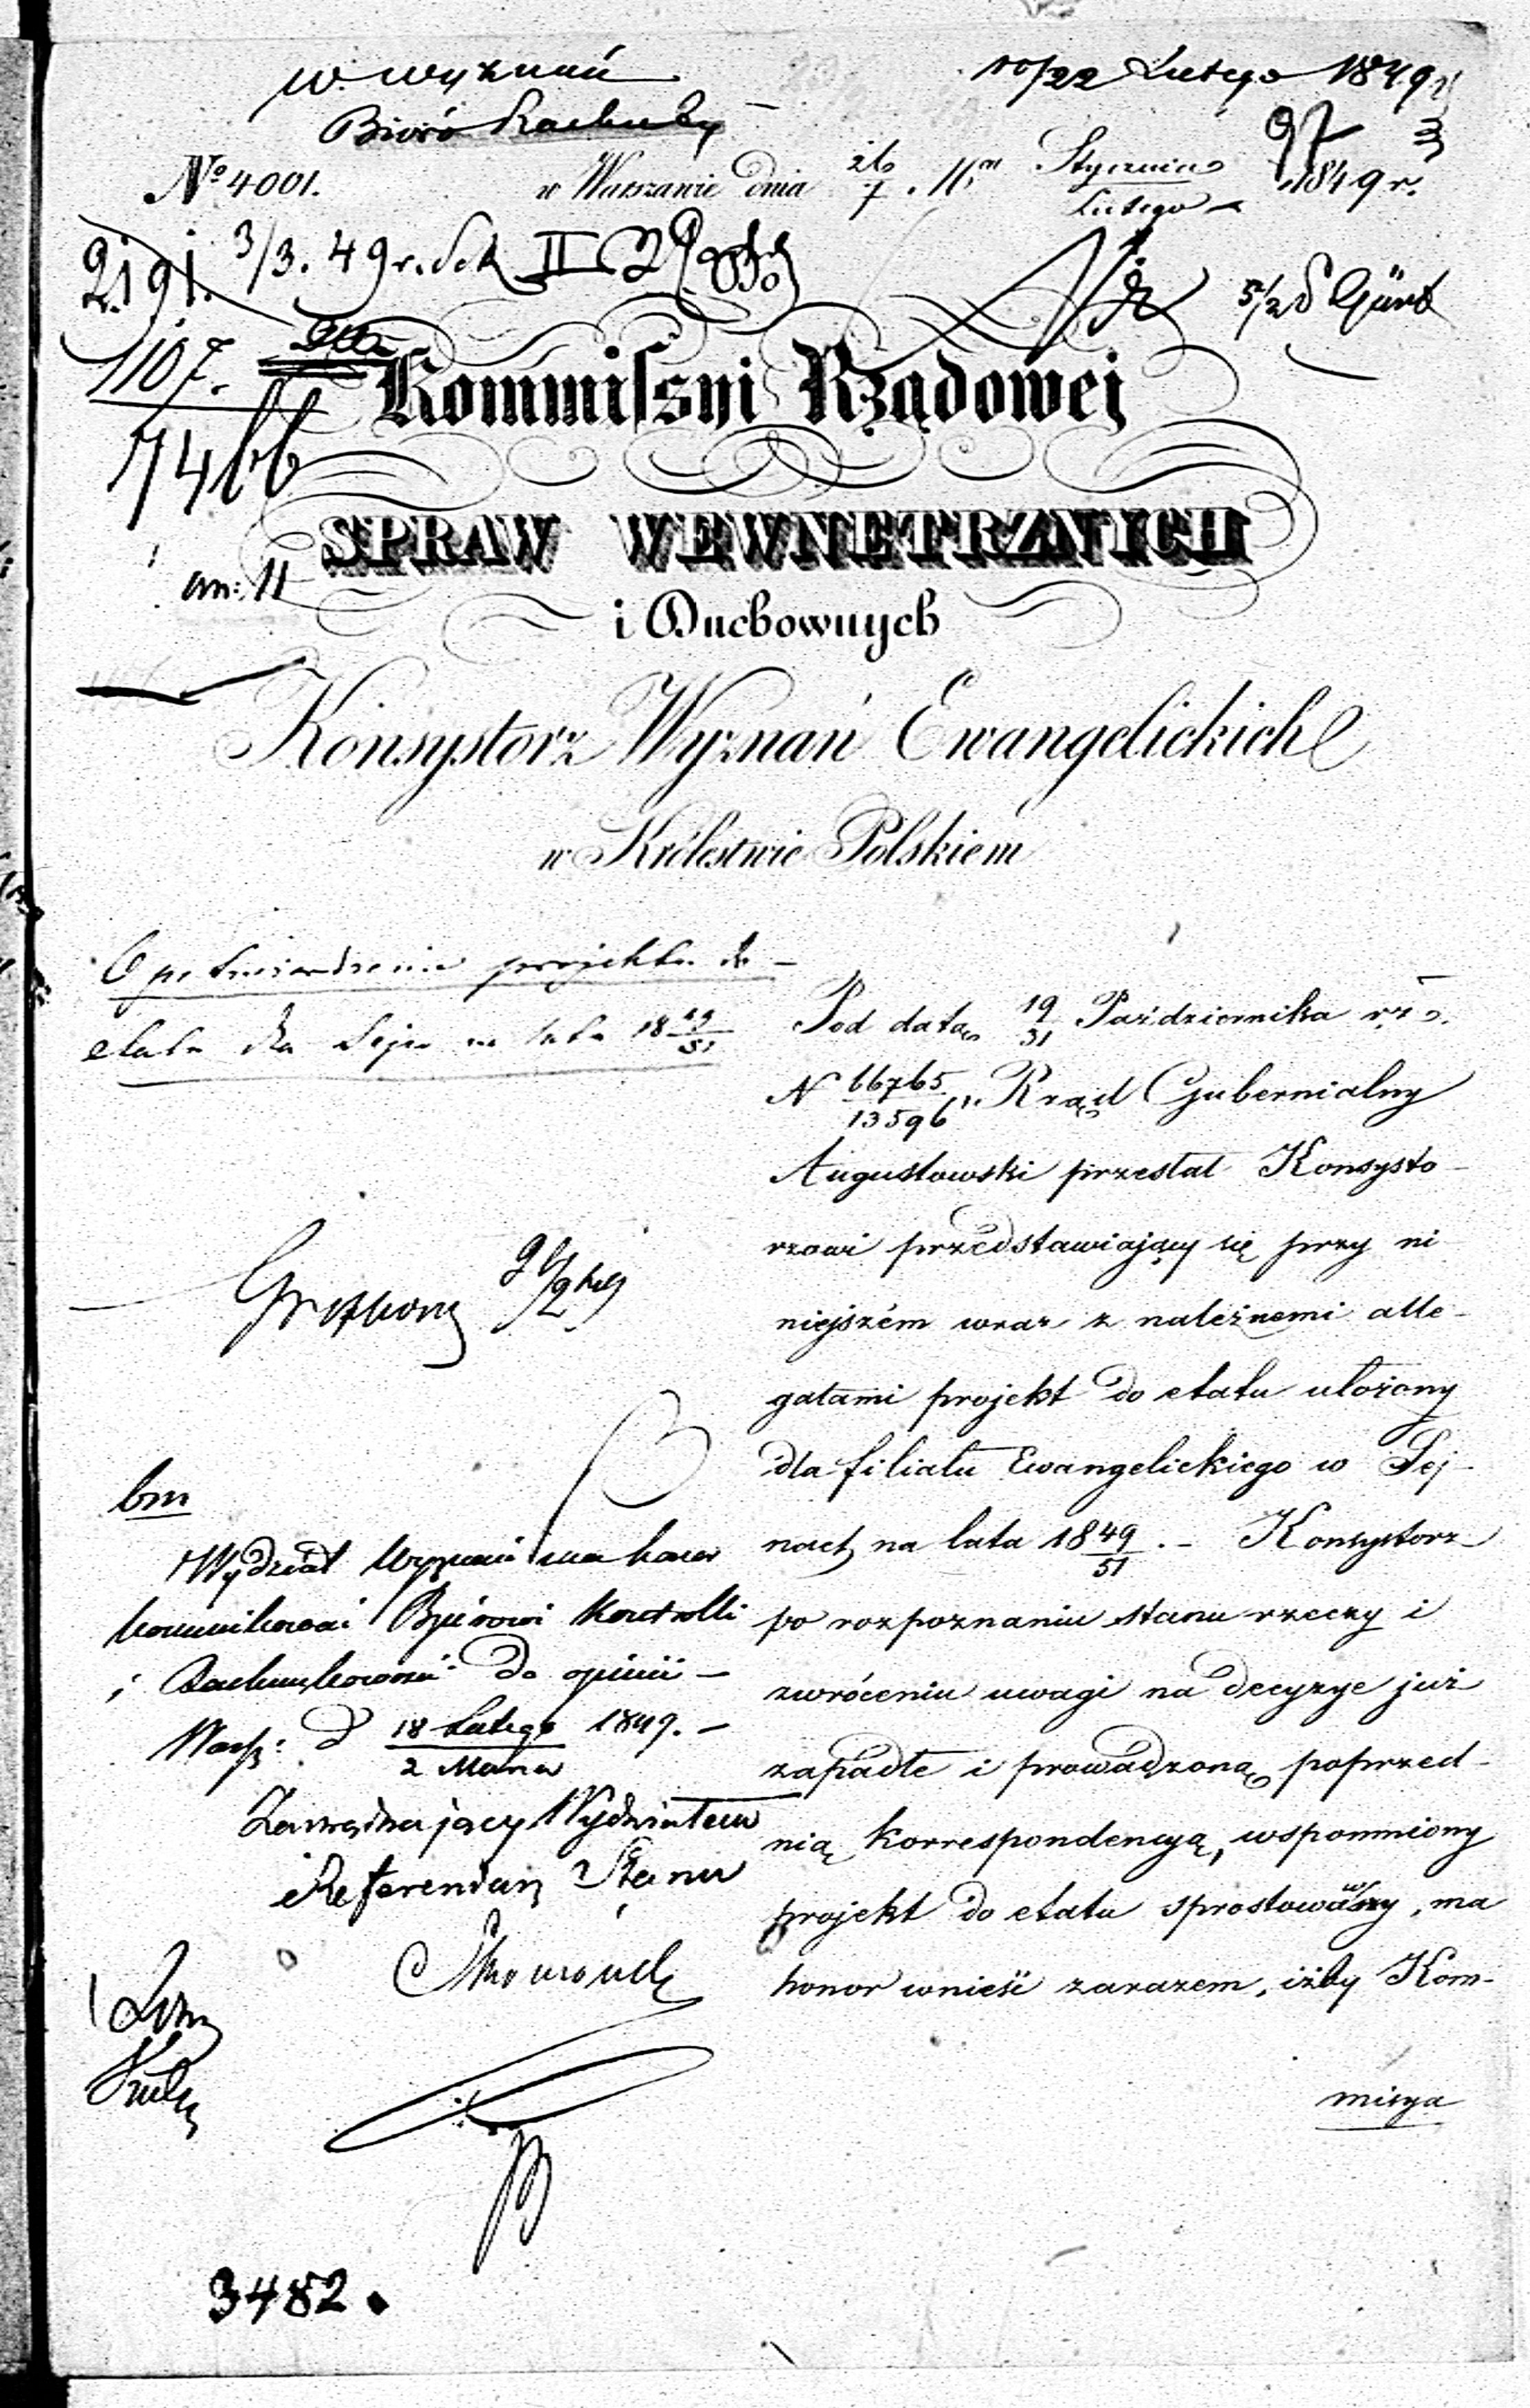 W. Wyznań
10/22 Lutego 1849 r
Biuro Rachuby
97
3
No 4001.
w Warszawie dnia 26/7 Mca Stycznia/Lutego 1849 r.
2191.
3/3. 49 r. Sek II
1107.
7466
Kommissyi Rządowej
SPRAW WEWNĘTRZNYCH
an: 11
i Duchownych
Konsystorz Wyznań Ewangelickich
w Królestwie Polskiem
O potwierdzenie projektu do
etatu dla Sejn na lata 18 49/51
Pod datą 19/31 Października r. z.
N 66765/13596 Rząd Gubernialny
Augustowski przesłał Konsysto-
rzowi przedstawiający się przy ni
niejszém wraz z należnemi alle-
gatami projekt do etatu ułożony
dla filiału Ewangelickiego w Sej-
nach na lata 18 49/51. - Konsystorz
po rozpoznaniu stanu rzeczy i
zwróceniu uwagi na decyzye już
zapadłe i prowadzoną poprzed-
nią korrespondencyą, wspomniony
projekt do etatu sprostowawszy, ma
honor wnieść zarazem, iżby Kom-
misya
bm
Wydział Wyznań ma honor
kommunikować Biurowi Kontrolli
i Rachunkowości do opinii -
Warsz: d 18 Lutego/2 Marca 1849. -
Zarządzający Wydziałem
Referendarz Stanu
3482.